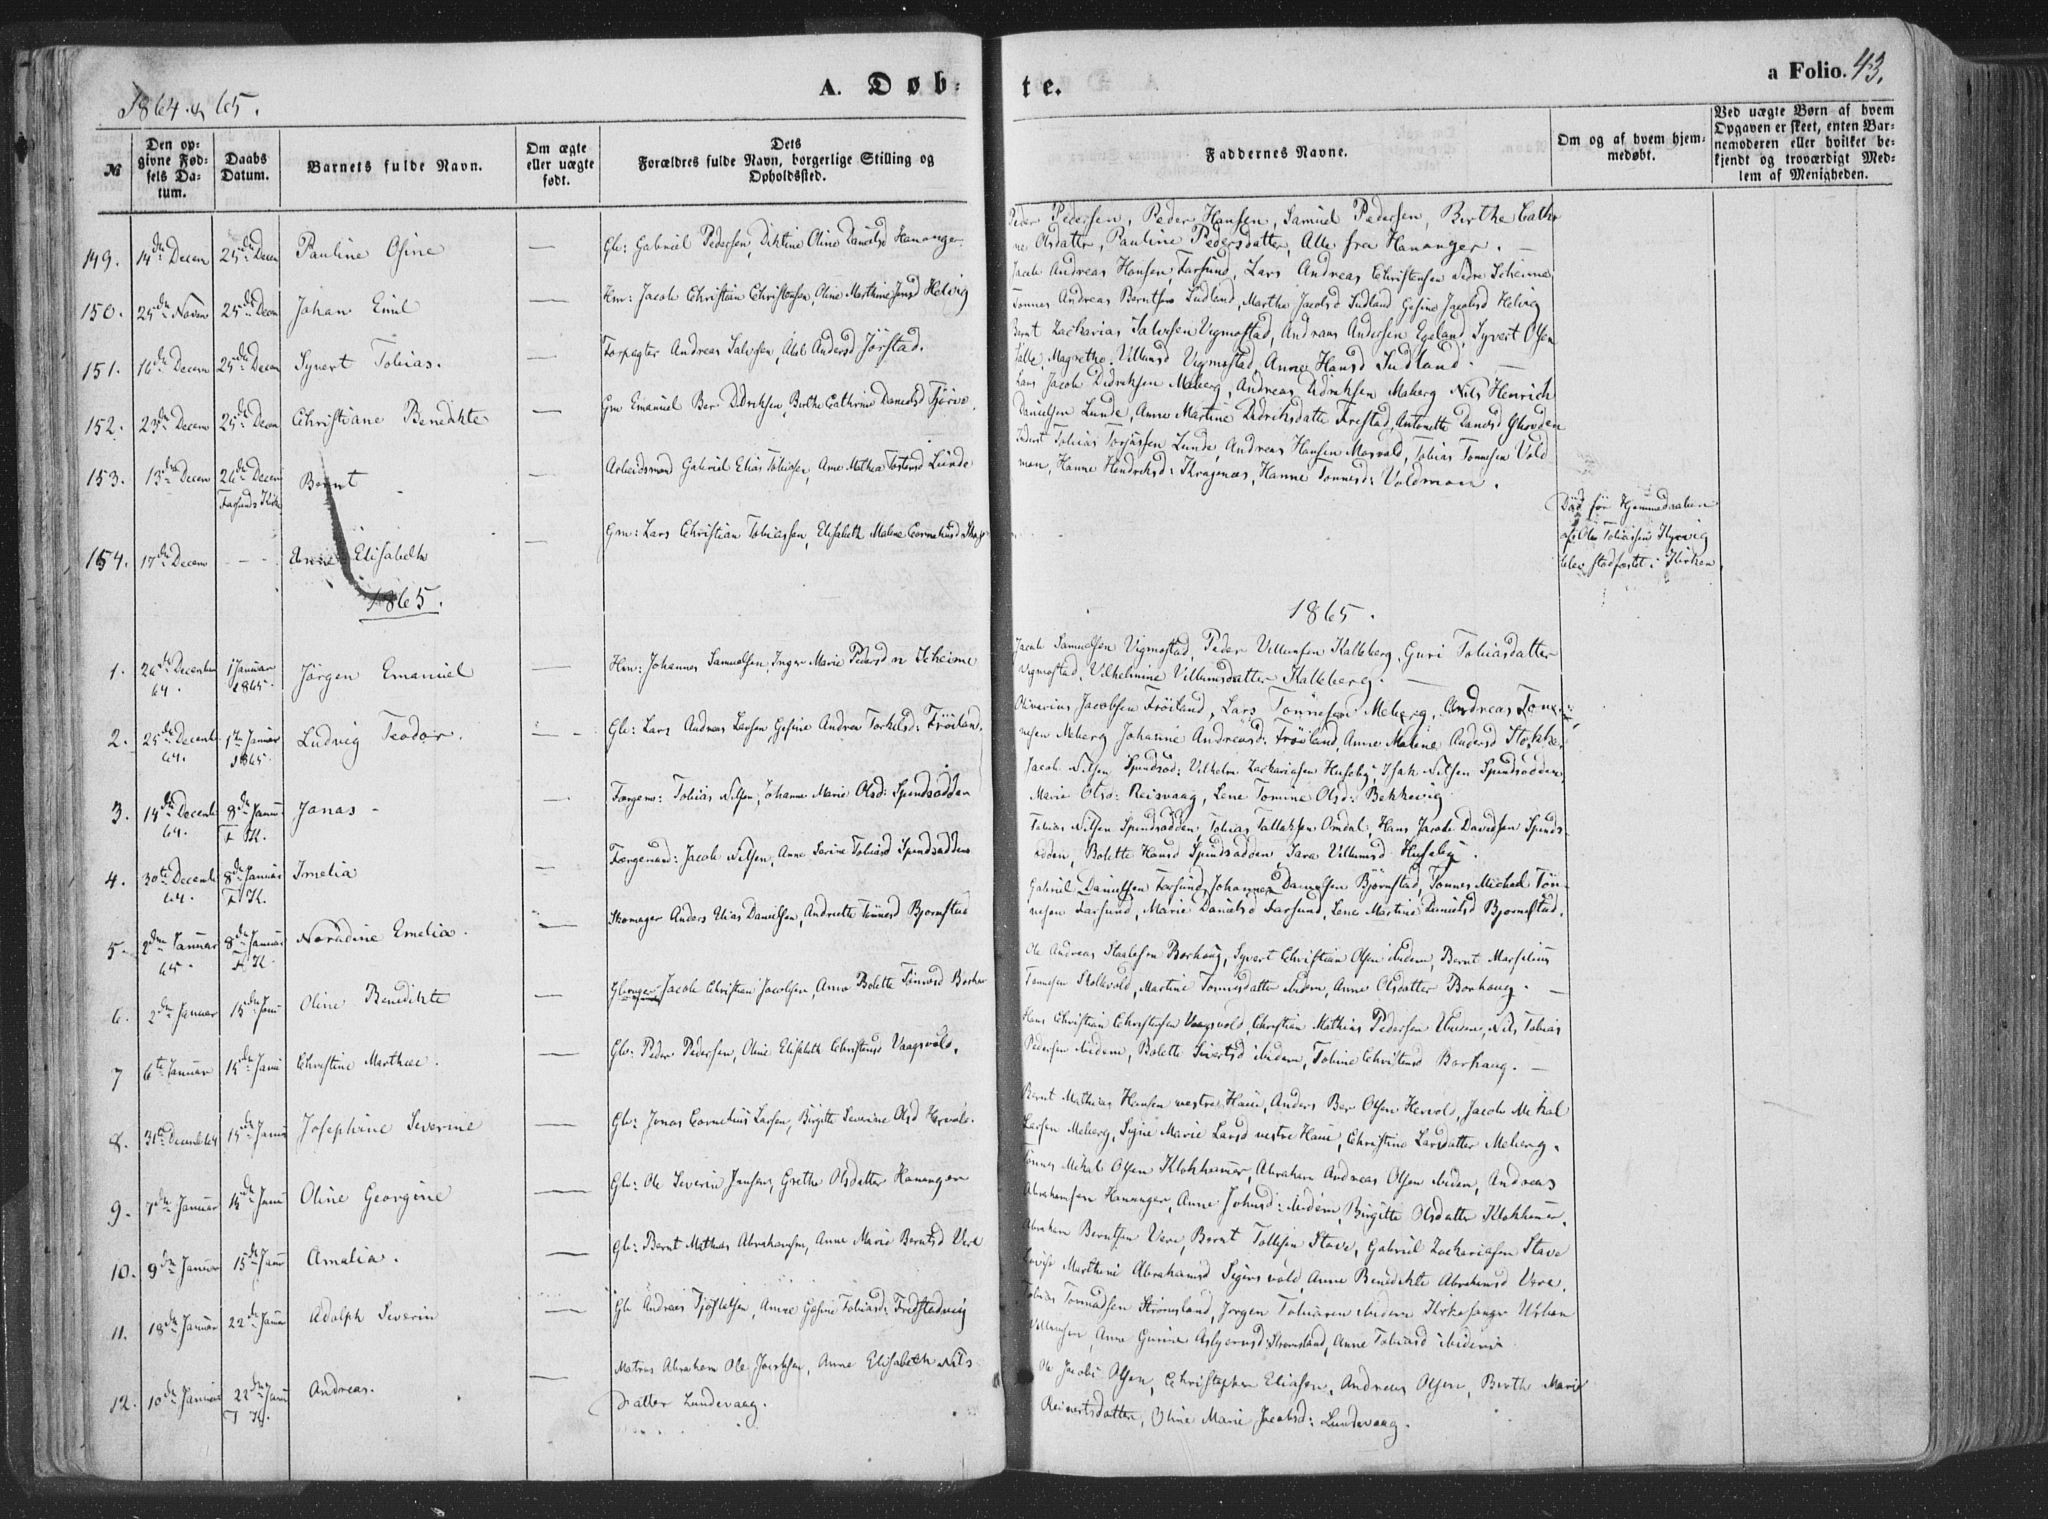 1864 & 65.
A. Døb-
te.
a Folio. 43.
№
Den op-
givne Fød-
sels Da-
tum.
Daabs
Datum.
Barnets fulde Navn.
Om ægte
eller uægte
født.
Dets
Forældres fulde Navn, borgerlige Stilling og
Opholdssted.
Faddernes Navne.
Om og af hvem hjem-
medøbt.
Ved uægte Børn af hvem
Opgaven er skeet, enten Bar-
nemoderen eller hvilket be-
kjendt og troværdigt Med-
lem af Menigheden.
149. 14de Decem 25de Decem Pauline Osine — Glr: Gabriel Pedersen, Oline Danielsd Hananger.
Peder Pedersen, Peder Hansen, Samuel Pedersen, Berthe Cathr
ne Olsdatter, Pauline Pedersdatter, Alle fra Hananger. —
150. 25de Novem 25de Decem Johan Emil — Hm: Jacob Christian Christensen, Oline Marthine Jensd Helvig
Jacob Andreas Hansen Farsund, Lars Andreas Christensen Nedre Scheime
Tønnes Andreas Berntsen Sudland, Marthe Jacobsd Sudland Gesine Jacobsd Helvig
151. 16de Decem 25de Decem Syvert Tobias. — Forpagter Andreas Salvesen, Andersd Jørstad.
Bernt Zacharias Salvesen Vigmostad, Andreas Andersen Egeland, Syvert Olsen
Magrethe Villumsd Vigmostad, Anne Hansd Sudland. —
152. 23de Decem 25de Decem Christiane Benedikte — Gm Emanuel Ber Didriksen, Berthe Cathrine Danielsd Tjørve.
Lars Jacob Didriksen Meberg, Andreas Didriksen Meberg Nils Henrich
Danielsen Lunde, Anne Martine Didriksdatter Frestad, Antonette Danielsd
153. 13de Decem 26de Decem Bernt — Arbeidsmand Gabriel Elias Tobiassen, Ane Mathea Lunde
Farsunds Kirke
Tobias Torjussen Lunde, Andreas Hansen Mosvold, Tobias Tønnesen Vold
mon, Hanne Hendriksd: Kragenæs, Hanne Tønnesd: Voldmon.
154. 17de Decem — — Elisabeth — Gm: Lars Christian Tobiassen, Elisabeth Malene Corneliusd
Død før Hjemmedaaben
af Ole Tobiassen
blev stadfæstet i Kirken.
1865.
1865.
1. 26de December 64. 1 Januar 1865. Jörgen Emanuel — Hm: Johannes Samuelsen, Inger Marie Pedersd n Scheime
Jacob Samuelsen Vigmostad, Peder Villumsen Kalleberg, Guri Tobiasdatter
Vigmostad, Vilhelmine Villumsdatter Kalleberg. —
2. 25de Decemb 64. 1ste Januar 1865. Ludvig Teodor. — Glr: Lars Andreas Larsen, Gesine Andrea Torkelsd: Fröiland.
Oliverius Jacobsen Fröiland, Lars Tønnesen Meberg, Andreas Tøn-
nesen Meberg Johanne Andreasd: Fröiland, Anne Malene Andersd
3. 14de Decemb 64. 8de Januar F. K. Jonas — Færgem: Tobias Nilsen, Johanne Marie Olsd: Spindsodden
Jacob Nilsen Spindsod: Vilhelm Zachariasen Huseby, Isak Nilsen Spindsodden,
Marie Olsd: Reisvaag, Lene Tomine Olsd: Bekkevig
4. 30te Decemb 64. 8de Januar F. K. Imelia — Færgemand: Jacob Nilsen, Anne Serine Tobiasd Spindsodden
Tobias Nilsen Spindsodden, Tobias Tallaksen Omdal, Hans Jacob Davidsen Spinds-
odden, Bolette Hansd Spindsodden, Sara Villumsd Huseby.
5. 2den Januar 65. 8de Januar F. K. Noradine Emelia. — Skomager Anders Elias Danielsen, Andriette Tønnesd Bjørnstad
Gabriel Danielsen Farsund, Johannes Danielsen Björnstad, Tønnes Michael Tön-
nesen Farsund, Marie Danielsd Farsund, Lene Martine Danielsd Bjørnstad.
6. 2den Januar 15de Janu Oline Benedikte — Jacob Christian Jacobsen, Anne Bolette Borhau
Ole Andreas Staalesen Borhaug, Syvert Christian Olsen ibidem, Bernt Marselius
Tønnesen Skollevold, Martine Tønnesdatter ibidem, Anne Olsdatter Borhaug. —
7 6te Januar 15de Janu Christine Marthea. — Glr: Peder Pedersen, Oline Elisabeth Christensd Vaagsvold.
Hans Christian Christensen Vaagsvold, Christian Mathias Pedersen ibidem, Nils Tobias
Pedersen ibidem, Bolette Sivertsd ibidem, Tobine Christensd Borhaug. —
8. 31te Decemb 64 15de Janu Josephine Severine — Glr: Jonas Cornelius Larsen, Birgitte Severine Olsd Hervold.
Bernt Mathias Hansen vestre Haue, Anders Ber Olsen Hervold, Jacob Mikal
Larsen Meberg, Signe Marie Larsd vestre Haue, Christine Larsdatter Meberg.
9. 7de Januar 15de Janu Oline Georgine — Glr: Ole Severin Jensen, Grethe Olsdatter Hananger
Tønnes Mikal Olsen Klokhammer, Abraham Andreas Olsen ibidem, Andreas
Abrahamsen Hananger, Anne Johnsd: ibidem, Birgitte Olsdatter Klokhammer.
10. 9de Januar 15de Janu Amalia. — Glr: Bernt Mathias Abrahamsen, Anne Marie Berntsd Vere
Abraham Berntsen Vere, Bernt Tollefsen Stave, Gabriel Zachariasen Stave
Lovise Marthine Abrahamsd Sigersvold, Anne Benedikte Abrahamsd Vere.
11. 18de Januar 22de Janu Adolph Severin — Glr Andreas Tjøstelsen, Anne Gesine Tobiasd: Fredstadvig
Tobias Tønnesen Strømsland, Jørgen Tobiasen ibidem Kirkesanger Urban
Villumsen, Anne Gurine Asbjørnsd Strømsland, Anne Tobiasd ibidem
12. 10de Januar 22de Janu F. K. Andreas. — Matros Abraham Ole Jacobsen, Anne Elisabeth Nils-
datter Lundevaag.
Ole Jacob Olsen, Christopher Eliasen, Andreas Olsen, Berthe Marie
Reinertsdatter, Oline Marie Jacobsd: Lundevaag.